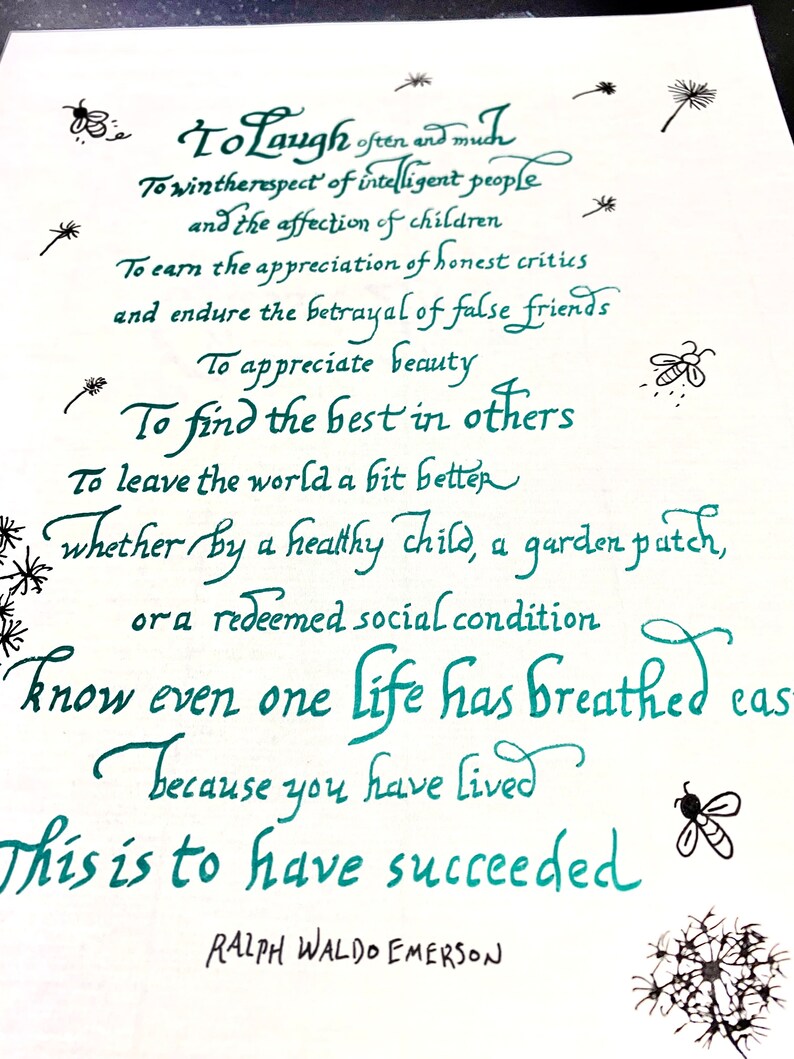 To Laugh often and much
To win the respect of intelligent people
and the affection of children
To earn the appreciation of honest critics
and endure the betrayal of false friends
To appreciate beauty
To find the best in others
To leave the world a bit better
whether by a healthy child, a garden patch,
or a redeemed social condition
know even one life has breathed eas
because you have lived
This is to have succeeded
RALPH WALDO EMERSON